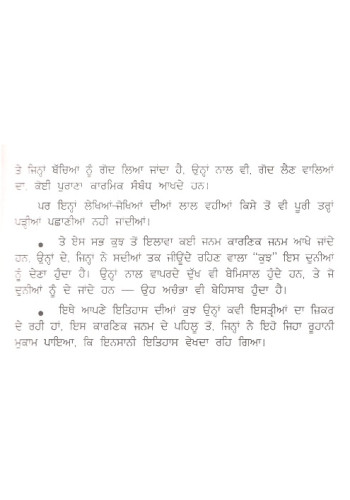 ਤੇ ਜਿਨ੍ਹਾਂ ਬੱਚਿਆ ਨੂੰ ਗੋਦ ਲਿਆ ਜਾਂਦਾ ਹੈ, ਉਨ੍ਹਾਂ ਨਾਲ ਵੀ, ਗੋਦ ਲੈਣ ਵਾਲਿਆਂ
ਦਾ, ਕੋਈ ਪੁਰਾਣਾ ਕਾਰਮਿਕ ਸੰਬੰਧ ਆਖਦੇ ਹਨ।
ਪਰ ਇਨ੍ਹਾਂ ਲੇਖਿਆਂ-ਜੋਖਿਆਂ ਦੀਆਂ ਲਾਲ ਵਹੀਆਂ ਕਿਸੇ ਤੋਂ ਵੀ ਪੂਰੀ ਤਰ੍ਹਾਂ
ਪੜ੍ਹੀਆਂ ਪਛਾਣੀਆਂ ਨਹੀ ਜਾਦੀਆਂ।
● ਤੇ ਏਸ ਸਭ ਕੁਝ ਤੋਂ ਇਲਾਵਾ ਕਈ ਜਨਮ ਕਾਰਣਿਕ ਜਨਮ ਆਖੇ ਜਾਂਦੇ
ਹਨ, ਉਨ੍ਹਾਂ ਦੇ, ਜਿਨ੍ਹਾਂ ਨੇ ਸਦੀਆਂ ਤਕ ਜੀਊਂਦੇ ਰਹਿਣ ਵਾਲਾ “ਕੁਝ” ਇਸ ਦੁਨੀਆ
ਨੂੰ ਦੇਣਾ ਹੁੰਦਾ ਹੈ। ਉਨ੍ਹਾਂ ਨਾਲ ਵਾਪਰਦੇ ਦੁੱਖ ਵੀ ਬੇਮਿਸਾਲ ਹੁੰਦੇ ਹਨ, ਤੇ ਜੋ
ਦੁਨੀਆਂ ਨੂੰ ਦੇ ਜਾਂਦੇ ਹਨ — ਉਹ ਅਚੰਭਾ ਵੀ ਬੇਹਿਸਾਬ ਹੁੰਦਾ ਹੈ।
● ਇਥੇ ਆਪਣੇ ਇਤਿਹਾਸ ਦੀਆਂ ਕੁਝ ਉਨ੍ਹਾਂ ਕਵੀ ਇਸਤ੍ਰੀਆਂ ਦਾ ਜ਼ਿਕਰ
ਦੇ ਰਹੀ ਹਾਂ, ਇਸ ਕਾਰਣਿਕ ਜਨਮ ਦੇ ਪਹਿਲੂ ਤੋਂ, ਜਿਨ੍ਹਾਂ ਨੇ ਇਹੋ ਜਿਹਾ ਰੂਹਾਨੀ
ਮੁਕਾਮ ਪਾਇਆ, ਕਿ ਇਨਸਾਨੀ ਇਤਿਹਾਸ ਵੇਖਦਾ ਰਹਿ ਗਿਆ।